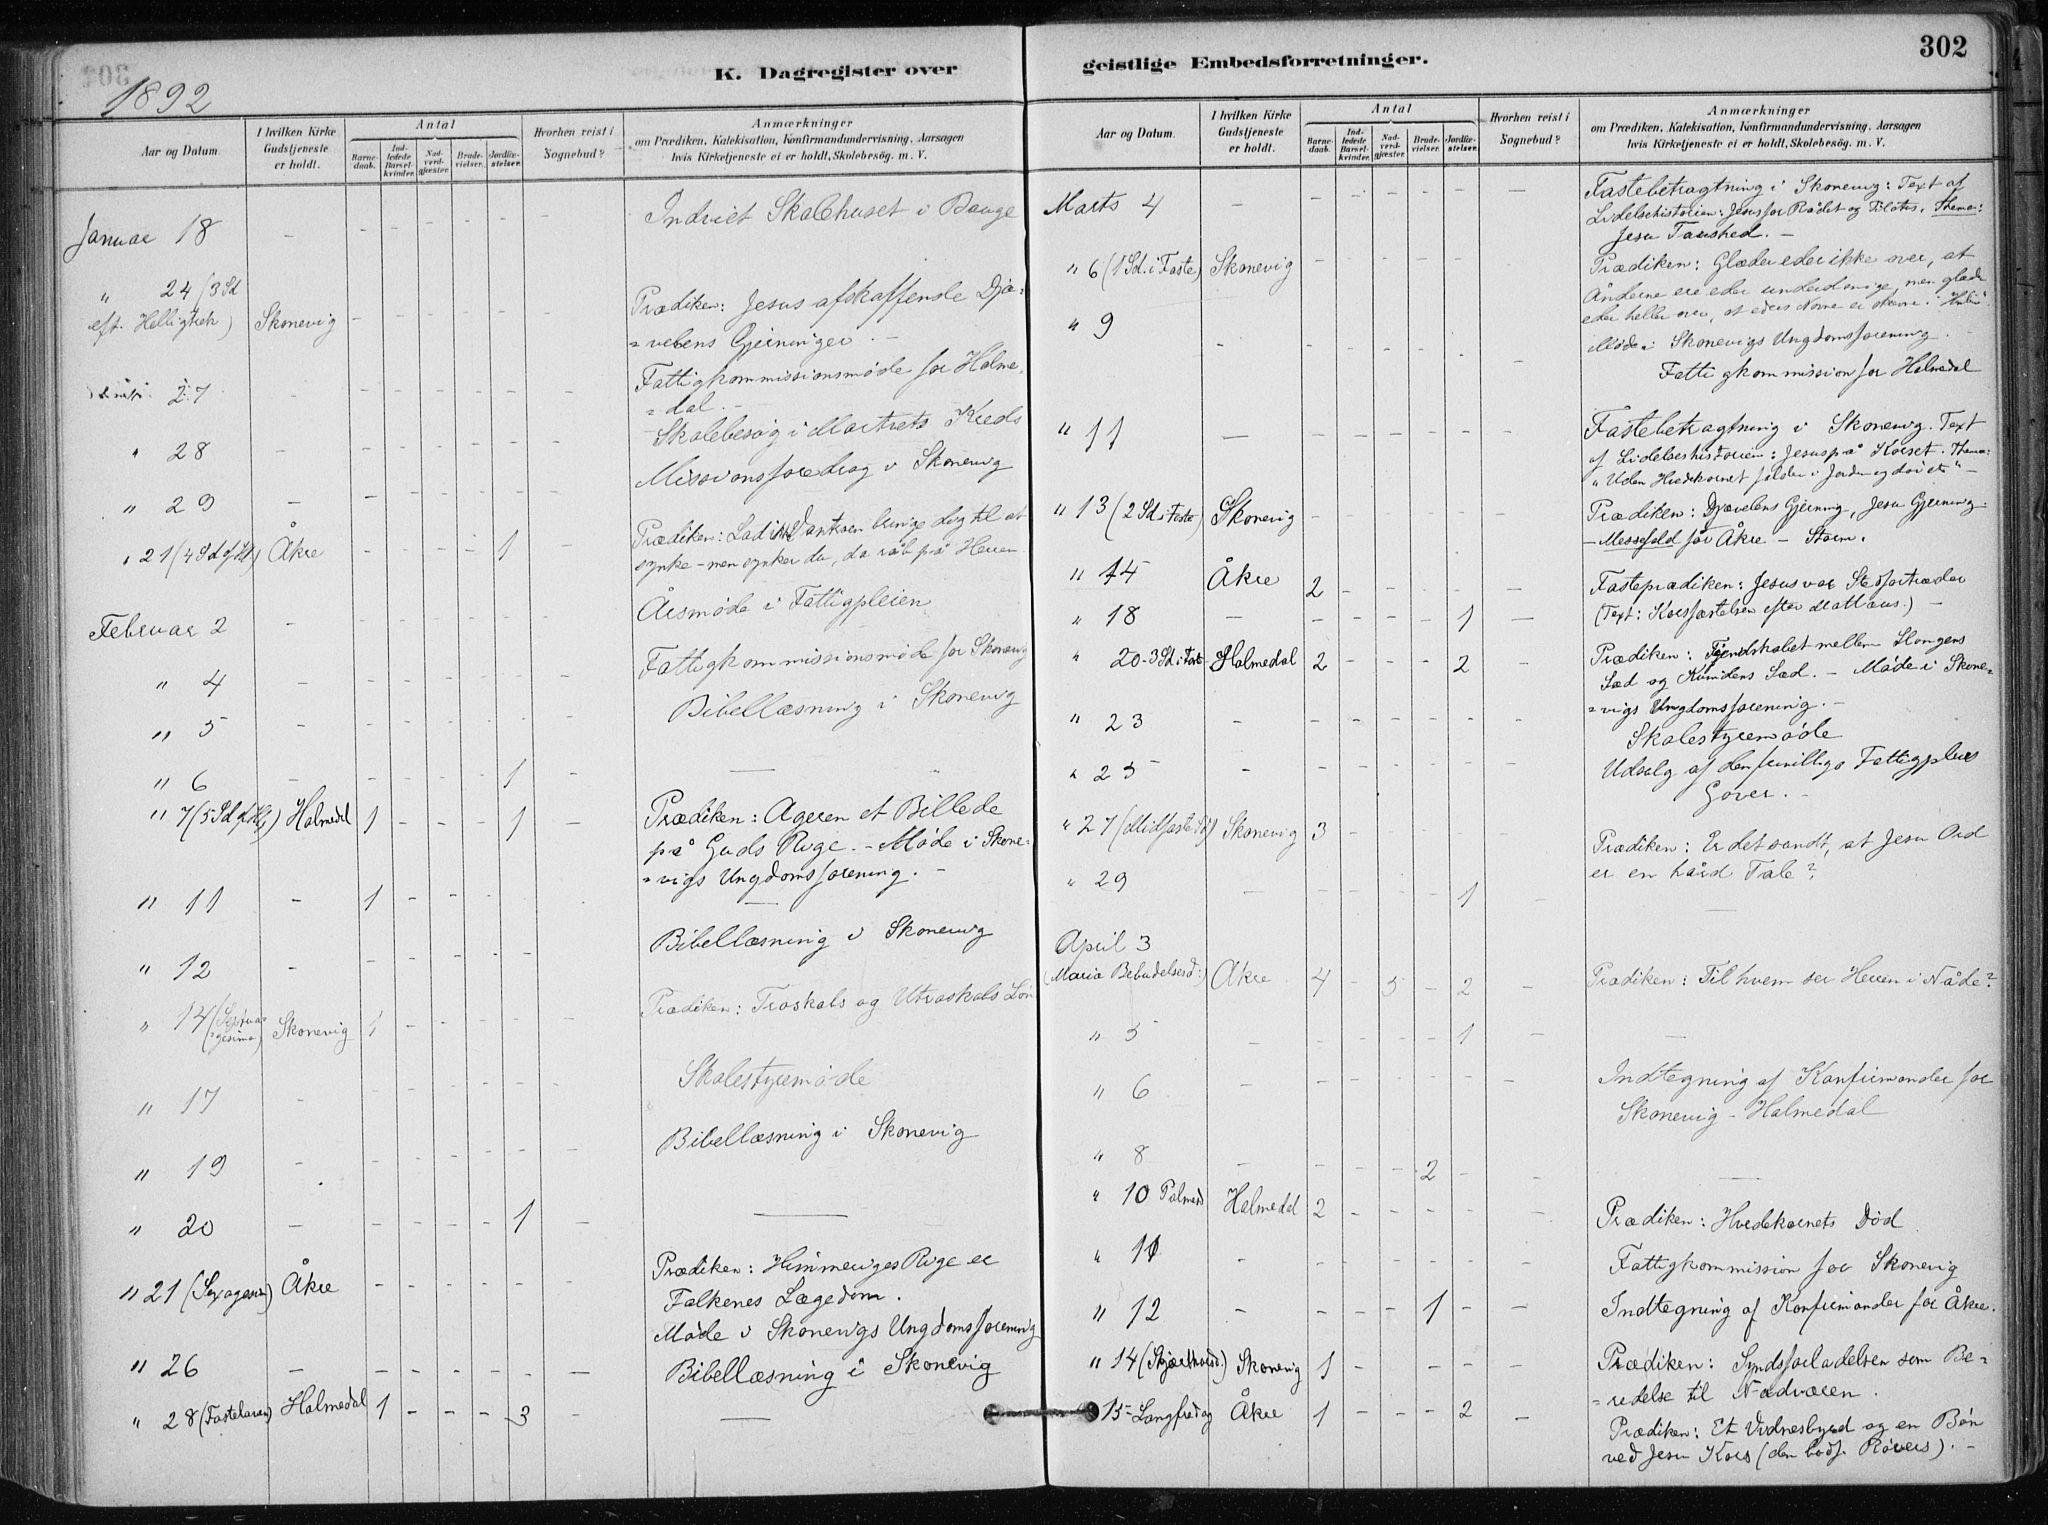 302
1892
K. Dagregister over
geistlige Embedsforretninger.
Aar og Datum.
I hvilken Kirke Gudstjeneste er holdt.
Antal
Barne-daab.
Ind-ledede Barsel-kvinder.
Nad-verd-gjester.
Brude-vielser.
Jordfæ-stelser.
Hvorhen reist i Sognebud?
Anmærkninger
om Prædiken, Katekisation, Konfirmandundervisning, Aarsagen
hvis Kirketjeneste ei er holdt, Skolebesøg. m. V.
Januar 18 - - - - - - - Indviet Skolehuset i Bauge
" 24 (3 Sd
eft. Helligtrek) Skonevig - - - - - - Prædiken: Jesus afskaffende Djæ=
=velens Gjerninger. -
27 - - - - - - - Fattigkommissionsmøde for Holme=
=dal. -
" 28 - - - - - - - Skolebesøg i Kreds
" 29 - - - - - - - Missionsforedrag i Skonevig
" 21 (4 Sd Åkre - - - - 1 - Prædiken: Lad dig til at
synke - men synker du, da råb på Herren
Februar 2 - - - - - - - Årsmøde i Fattigpleien
" 4 - - - - - - - Fattigkommissionsmøde for Skonevig
" 5 - - - - - - - Bibellæsning i Skonevig
" 6 - - - - - 1 - -
" 7 (5 Sd Holmedal 1 - - - 1 - Prædiken: Ageren et Billede
på Guds Rige. - Møde i Skone=
=vigs Ungdomsforening. -
" 11 - 1 - - - - - -
" 12 - - - - - - - Bibellæsning i Skonevig
" 14 (Septua=
=gesima) Skonevig 1 - - - - - Prædiken: Troskabs og Utroskabs Løn
" 17 - - - - - - - Skolestyremøde
" 19 - - - - - - - Bibellæsning i Skonevig
" 20 - - - - - 1 - -
" 21 (Sexagesima) Åkre - - - - - - Prædiken: Himmeriges Rige er
Folkenes Lægedom.
Møde i Skonevigs Ungdomsforening
" 26 - - - - - - - Bibellæsning i Skonevig
" 28 (Fastelaven) Holmedal 1 - - - 3 - -
Aar og Datum.
I hvilken Kirke Gudstjeneste er holdt.
Antal
Barne-daab.
Ind-ledede Barsel-kvinder.
Nad-verd-gjester.
Brude-vielser.
Jordfæ-stelser.
Hvorhen reist i Sognebud?
Anmærkninger
om Prædiken, Katekisation, Konfirmandundervisning, Aarsagen
hvis Kirketjeneste ei er holdt, Skolebesøg. m. V.
Marts 4 - - - - - - - Fastebetragtning i Skonevig: Text af
Lidelseshistorien: Jesus for Rådet og Pilatus. Thema:
Jesu Taushed. -
" 6 (1 Sd. i Faste) Skonevig - - - - - - Prædiken: Glæder eder ikke over, at
Ånderne ere eder underdanige, men glæder
eder heller over, at eders Navne er skrevne i Himlen
" 9 - - - - - - - Møde i Skonevigs Ungdomsforening
Fattigkommission for Holmedal
" 11 - - - - - - - Fastebetragtning i Skonevig. Text
af Lidelseshistorien: Jesus på Korset. Thema:
"Uden Hvedekornet falder i Jorden og dør etc" -
" 13 (2 Sd i Faste) Skonevig - - - - - - Prædiken: Djævelens Gjerning, Jesu Gjerning
- Messefald for Åkre - Storm.
" 14 Åkre 2 - - - - - Fasteprædiken: Jesus vor Stedfortræder
" 18 - - - - - 1 - (Text: Korsfæstelsen efter Mattæus.) -
" 20 - 3 Sd i Faste Holmedal 2 - - - 2 - Prædiken: Fjendskabet mellem Slangens
Sæd og Kvindens Sæd. - Møde i Skone=
=vigs Ungdomsforening. -
" 23 - - - - - - - Skolestyremøde
" 25 - - - - - - - Udsalg af den frivillige Fattigpleies
Gaver. -
" 27 (Midfaste Sd) Skonevig 3 - - - - - Prædiken: Er det sandt, at Jesu Ord
er en hård Tale?
" 29 - - - - - 1 - -
April 3
(Maria Bebudelsesd:) Åkre 4 - 5 - 2 - Prædiken: Til hvem ser Herren i Nåde?
" 5 - - - - - 1 - -
" 6 - - - - - - - Indtegning af Konfirmander for
Skonevig - Holmedal
" 8 - - - - 2 - - -
" 10 Palmesd Holmedal 2 - - - - - Prædiken: Hvedekornets Død
" 11 - - - - - - - Fattigkommission for Skonevig
" 12 - - - - 1 - - Indtegning af Konfirmander for Åkre.
" 14 (Skjærthorsd.) Skonevig 1 - - - - - Prædiken: Syndsforladelsen som Be=
=redelse til Nadveren.
" 15 - Langfredag Åkre 1 - - - 2 - Prædiken: Et Vidnesbyrd og en Bøn
ved Jesu Kors (den bodf. Røvers). -